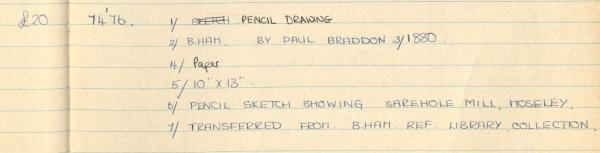 £20 74'76. 1/ SKETCH PENCIL DRAWING
2/ B.HAM. BY PAUL BRADDON 3/1880.
4/ Paper
5/ 10" X 13".
6/ PENCIL SKETCH SHOWING SAREHOLE MILL, MOSELEY.
7/ TRANSFERRED FROM B.HAM. REF. LIBRARY COLLECTION.